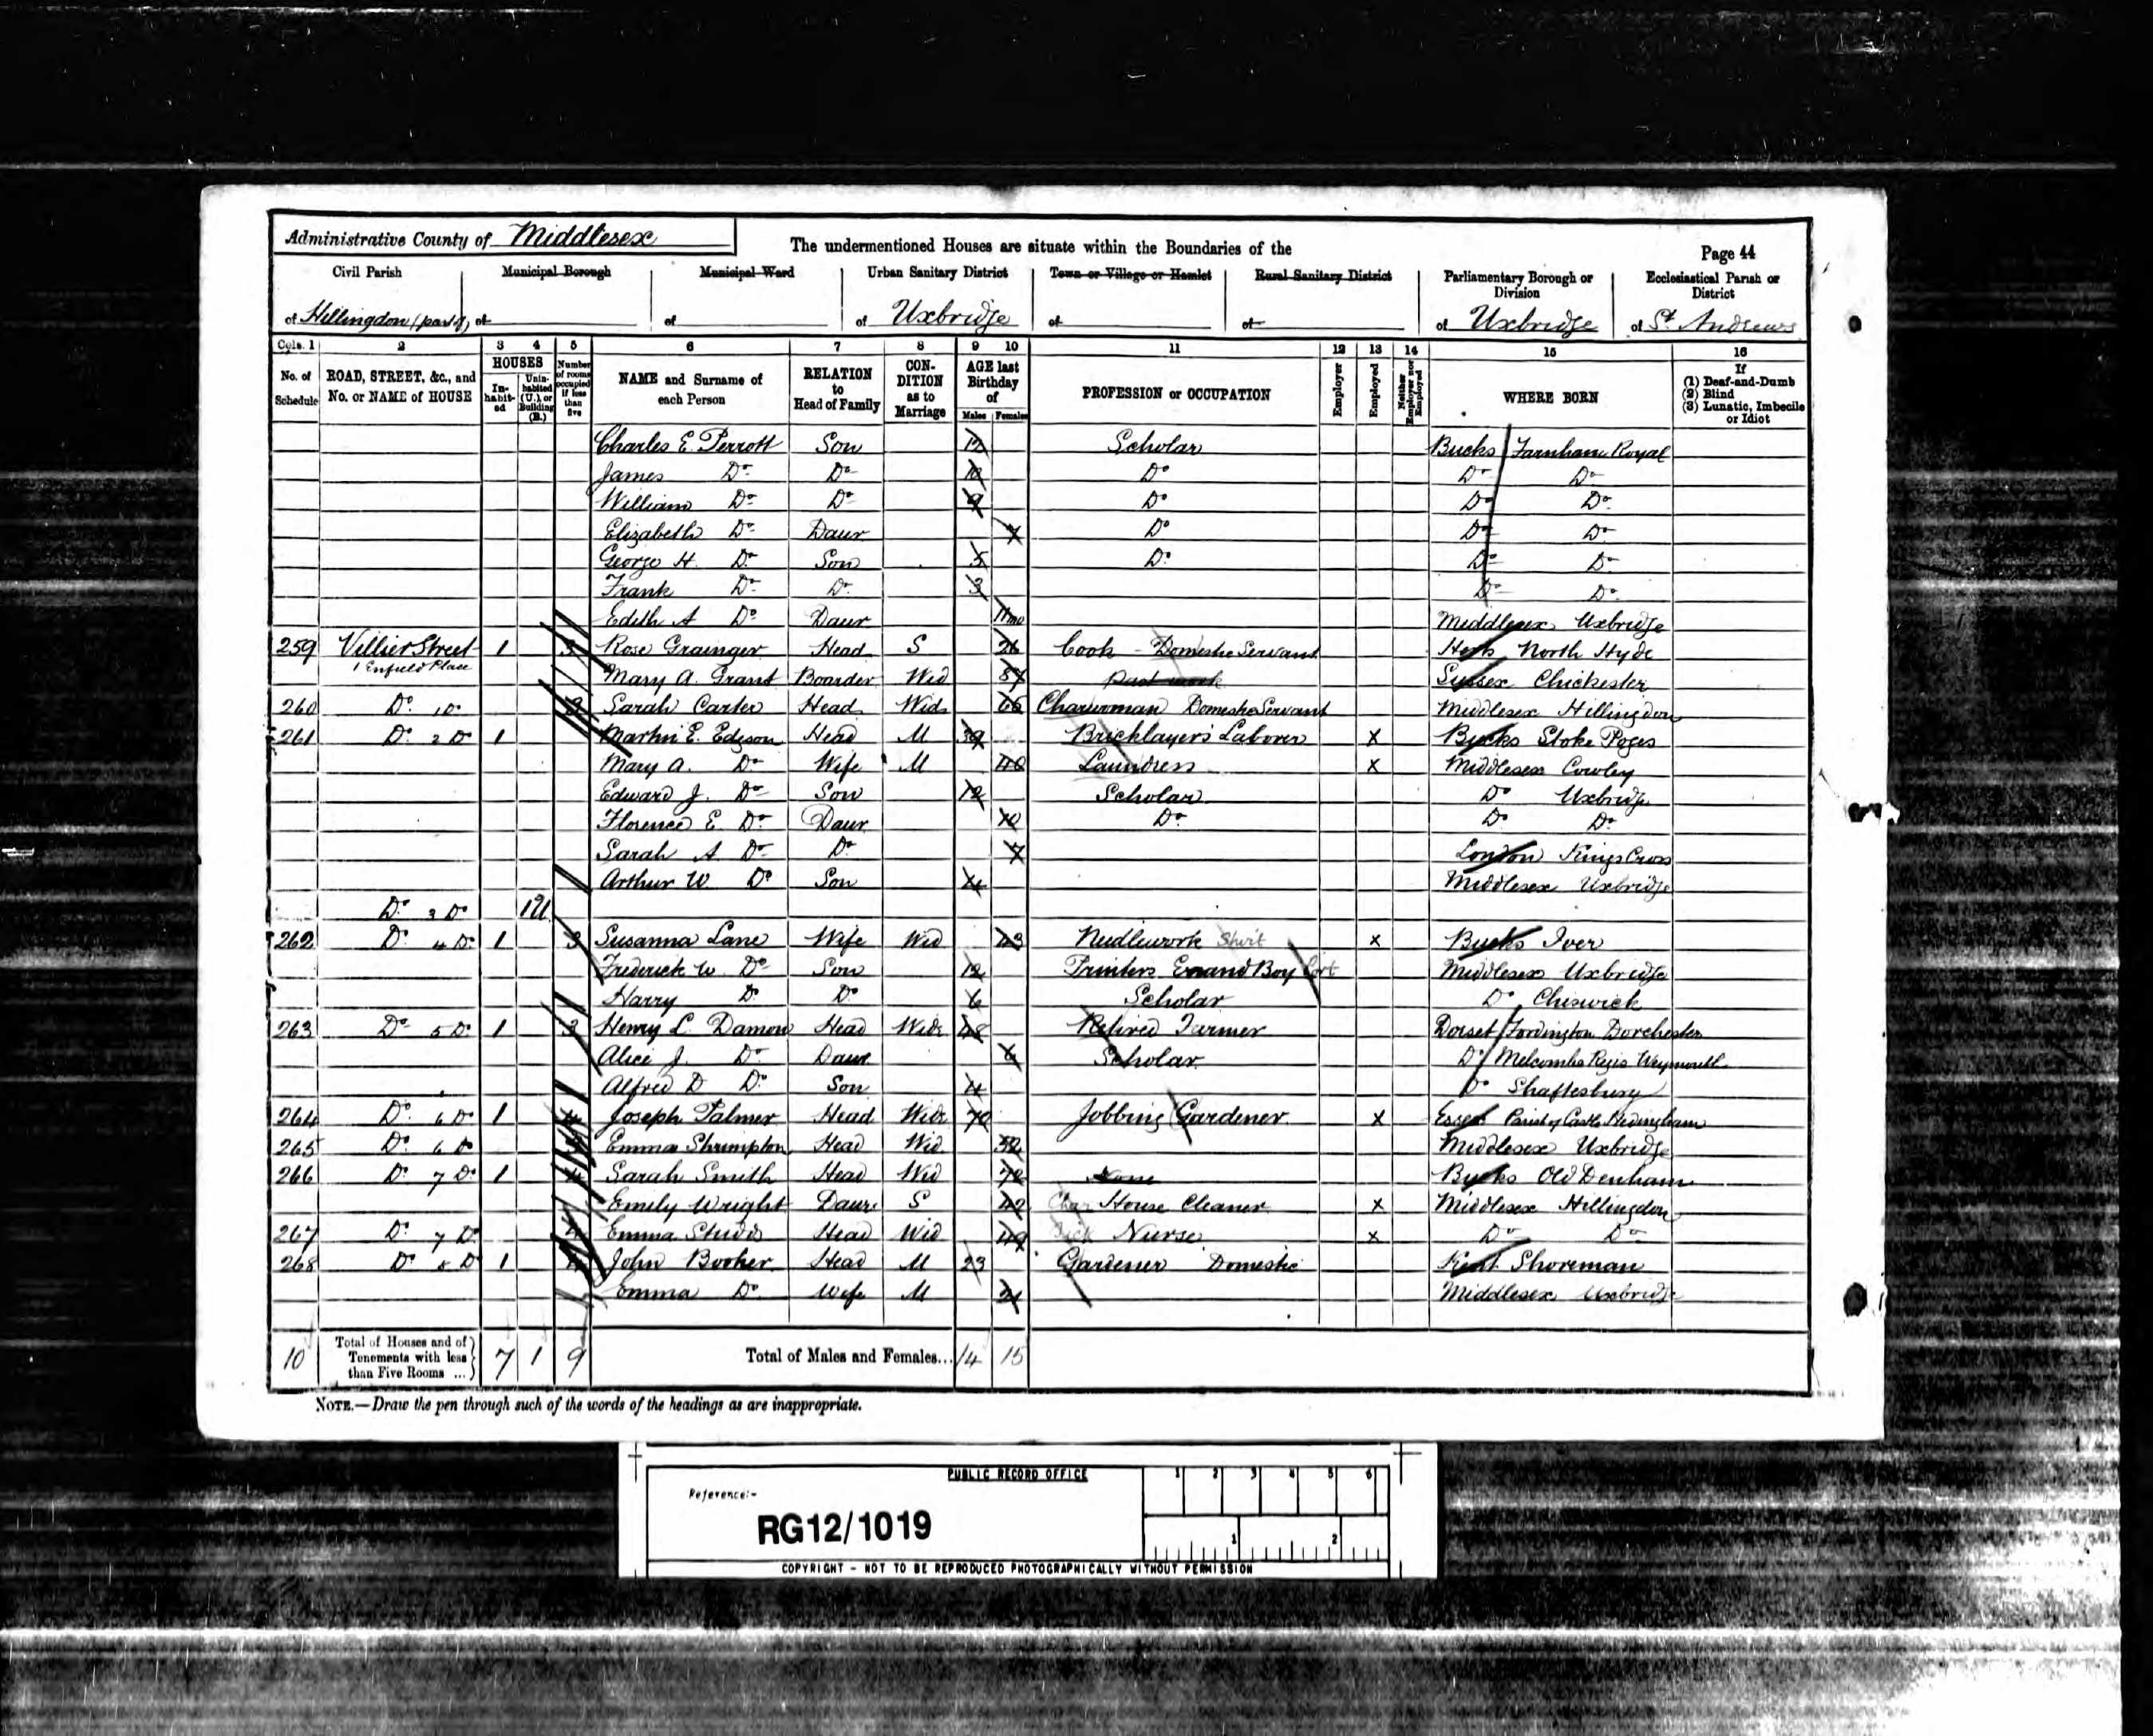 Administrative County of Middlesex
The undermentioned Houses are situate within the Boundaries of the
Page 44
Civil Parish Municipal Borough Municipal Ward Urban Sanitary District Town or Village or Hamlet Rural Sanitary District Parliamentary Borough or Division Ecclesiastical Parish or District
of Hillingdon (part of) of of of Uxbridge of of of Uxbridge of St. Andrews
Cols. 1 2 3 4 5 6 7 8 9 10 11 12 13 14 15 16
No. of Schedule ROAD, STREET, &c., and No. or NAME of HOUSE HOUSES Inhabited Uninhabited (U.), or Building (B.) Number of rooms occupied if less than five NAME and Surname of each Person RELATION to Head of Family CONDITION as to Marriage AGE last Birthday of Males Females PROFESSION or OCCUPATION Employer Employed Neither Employer nor Employed WHERE BORN If (1) Deaf-and-Dumb (2) Blind (3) Lunatic, Imbecile or Idiot
Charles E. Perrott Son 12 Scholar Bucks Farnham Royal
James Do Do 10 Do Do Do
William Do Do 9 Do Do Do
Elizabeth Do Daur 7 Do Do Do
George H. Do Son 5 Do Do Do
Frank Do Do 3 Do Do
Edith A Do Daur 11mo Middlesex Uxbridge
259 Villier Street 1 Enfield Place 1 3 Rose Grainger Head S 26 Cook Domestic Servant Herts North Hyde
Mary A. Grant Boarder Wid 87 Past work Sussex Chichester
260 Do 1 Do Sarah Carter Head Wid 66 Charwoman Domestic Servant Middlesex Hillingdon
261 Do 2 Do 1 Martin E. Edgson Head M 39 Bricklayer's Laborer X Bucks Stoke Poges
Mary A. Do Wife M 40 Laundress X Middlesex Cowley
Edward J. Do Son 12 Scholar Do Uxbridge
Florence E. Do Daur 10 Do Do Do
Sarah A Do Do 7 London Kings Cross
Arthur W Do Son 4 Middlesex Uxbridge
Do 3 Do 1U
262 Do 4 Do 1 3 Susanna Lane Wife Wid 43 Needlework Shirt X Bucks Iver
Frederick W Do Son 12 Printers Errand Boy Middlesex Uxbridge
Harry Do Do 6 Scholar Do Chiswick
263 Do 5 Do 1 3 Henry L. Damon Head Widr 48 Retired Farmer Dorset Fordington Dorchester
Alice J. Do Daur 6 Scholar Do Melcombe Regis Weymouth
Alfred D Do Son 4 Do Shaftesbury
264 Do 6 Do 1 4 Joseph Palmer Head Widr 70 Jobbing Gardener X Essex Parish of Castle Hedingham
265 Do 6 Do Emma Shrimpton Head Wid 52 Middlesex Uxbridge
266 Do 7 Do 1 4 Sarah Smith Head Wid 72 None Bucks Old Denham
Emily Wright Daur S 42 Char House Cleaner X Middlesex Hillingdon
267 Do 7 Do Emma Studds Head Wid 49 Sick Nurse X Do Do
268 Do 8 Do 1 John Booker Head M 23 Gardener Domestic Kent Shoreman
Emma Do Wife M 21 Middlesex Uxbridge
10 Total of Houses and of Tenements with less than Five Rooms ... 7 1 9 Total of Males and Females... 14 15
NOTE.—Draw the pen through such of the words of the headings as are inappropriate.
PUBLIC RECORD OFFICE
1 2 3 4 5 6
Reference:-
RG12/1019
1 2
COPYRIGHT - NOT TO BE REPRODUCED PHOTOGRAPHICALLY WITHOUT PERMISSION